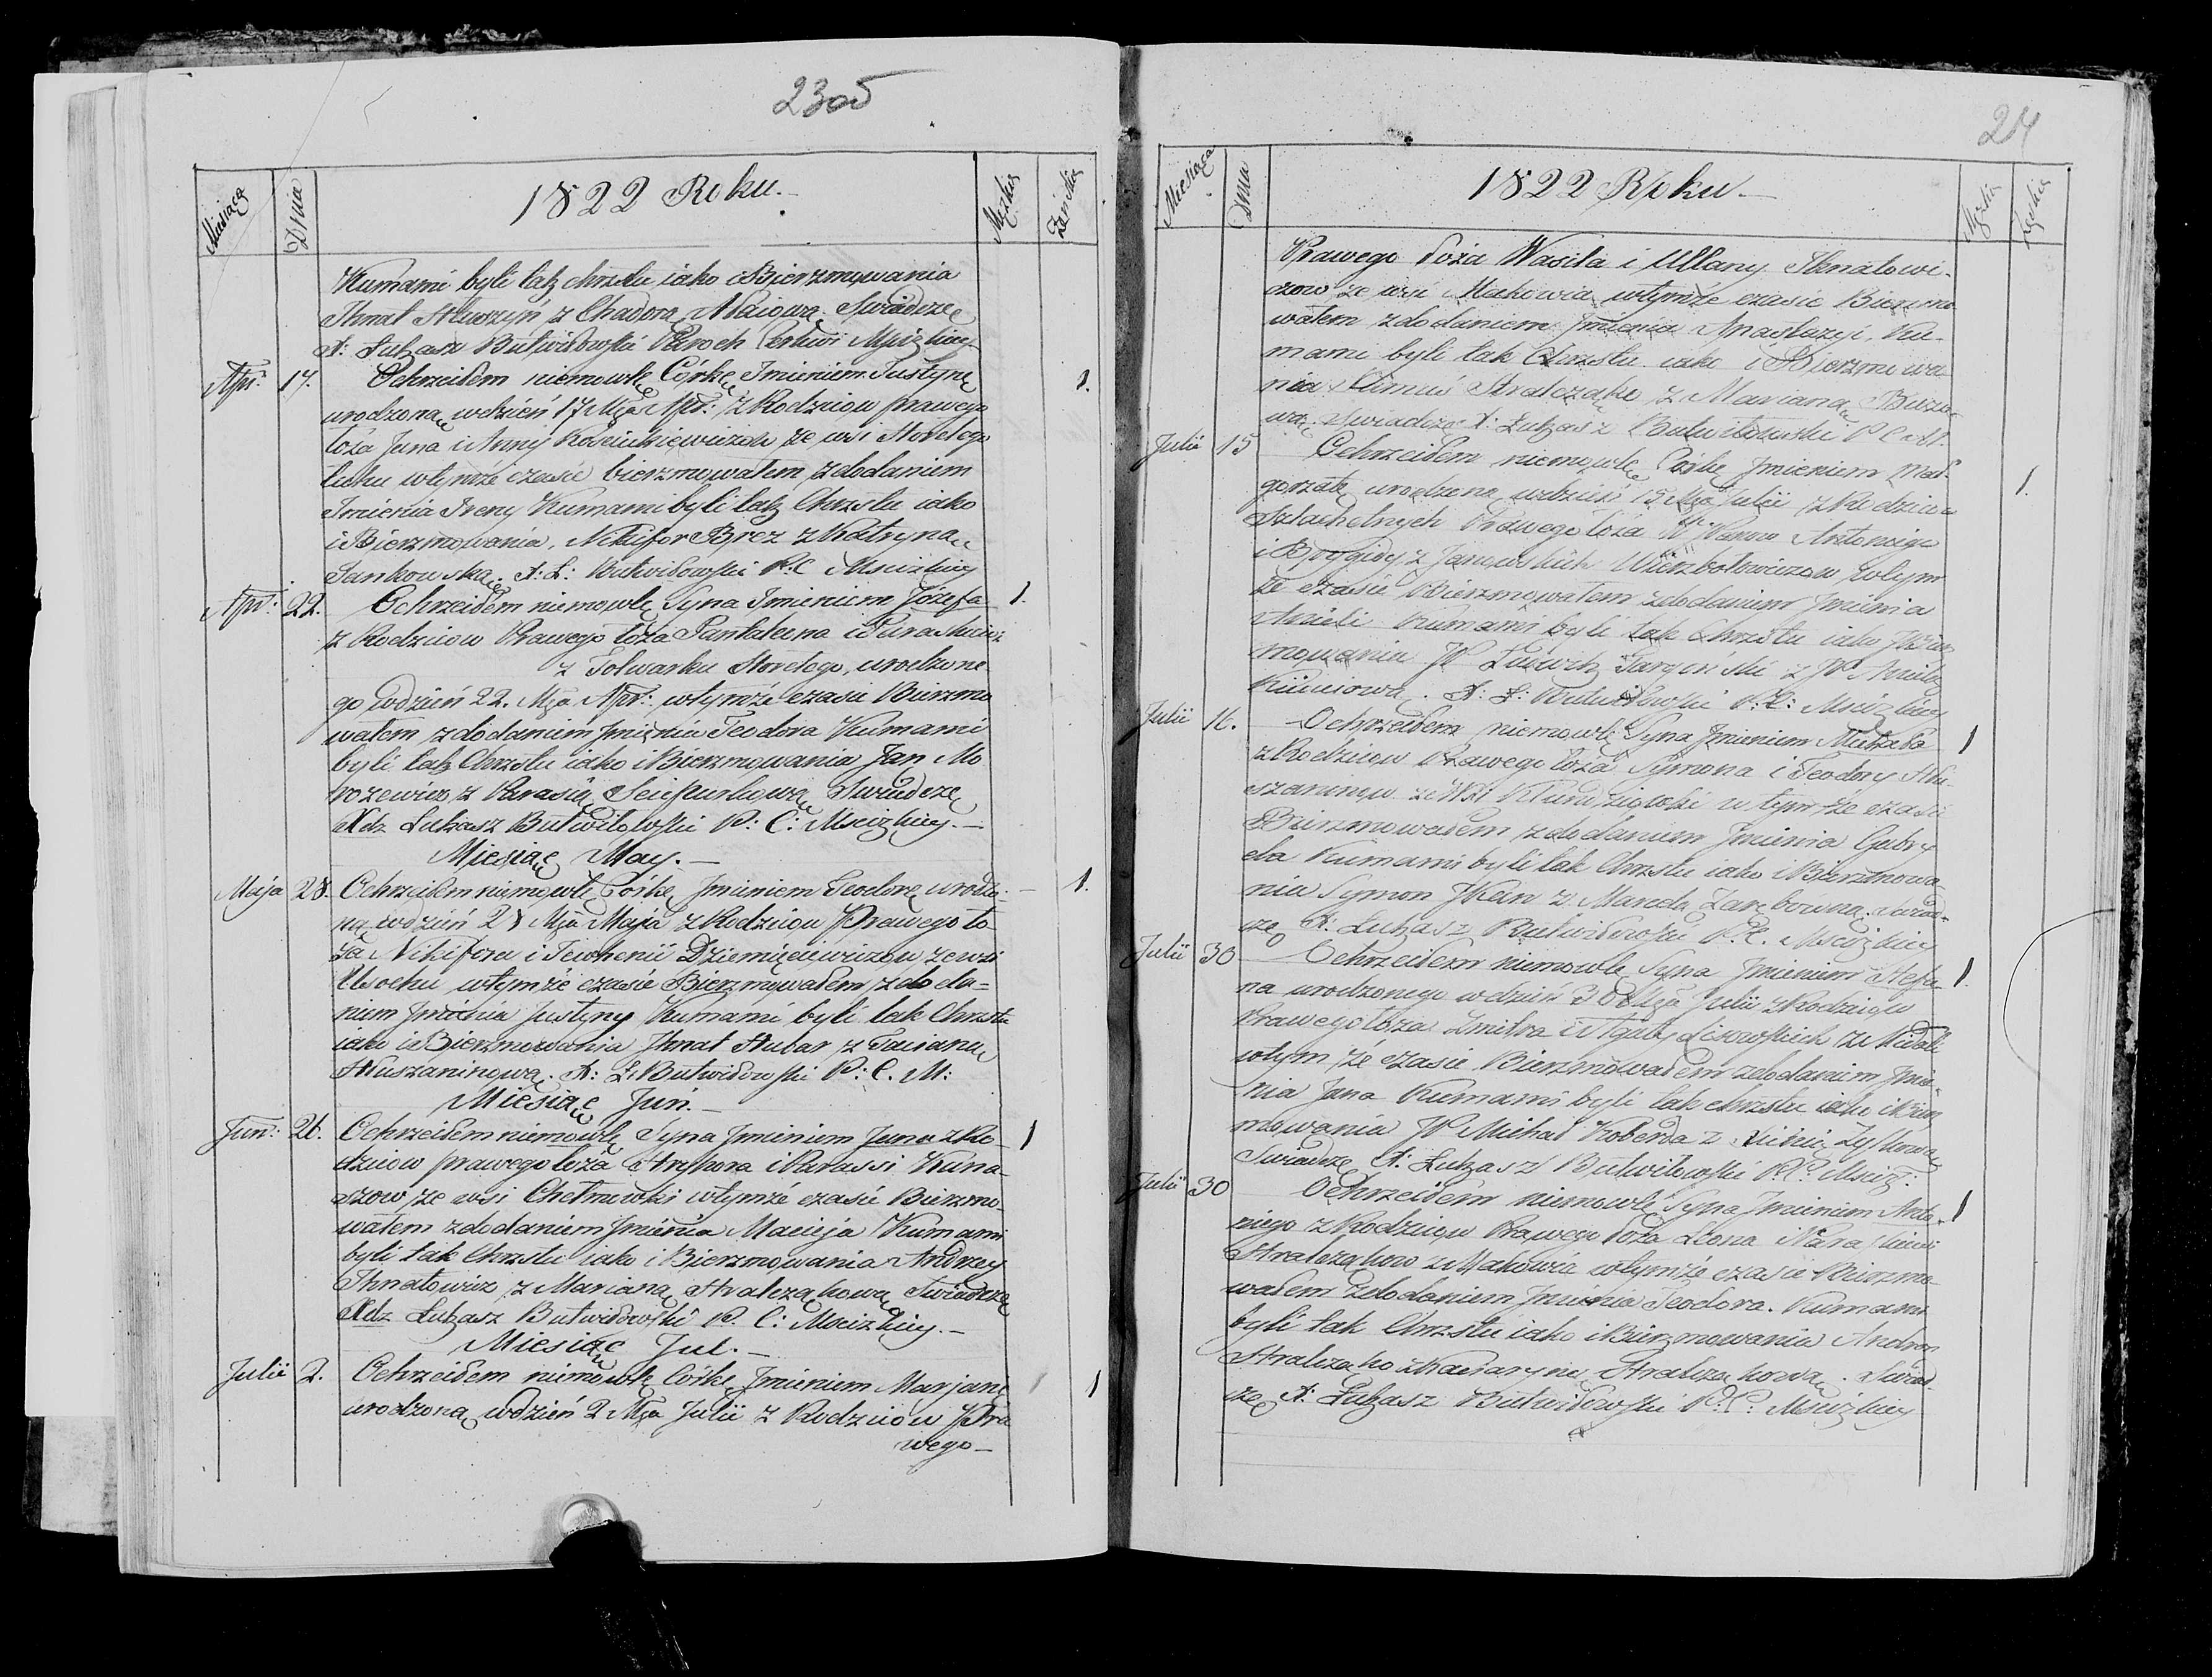 23об
Miesiąca Dnia 1822 Roku. Męzkie Żeńskie
Kumami byli tak chrztu iako i Bierzmowania
Ihnat z Chwedorą Swiadczę
X: Łukasz Butwiłowski Paroch Cerkwi
Apr: 17. Ochrzciłem niemowlę Córkę Imieniem Justynę 1.
urodzoną wdzień 17 Mca Apr: z Rodziców prawego
łoża Jana i Anny ze wsi
wtymże czasie bierzmowałem z dodaniem
Imienia Ireny Kumami byli tak Chrztu iako
i Bierzmowania, Nikifor Brez z Katryną
Jankowską. X: Ł: Butwiłowski P. C
Apr: 22. Ochrzciłem niemowlę Syna Imieniem Jozefa 1.
z Rodziców Prawego łoża Pantaleona i
z Folwarku urodzone
go wdzień 22. Mca Apr: wtymże czasie Bierzmo
wałem z dodaniem Imienia Teodora Kumami
byli tak Chrztu iako i Bierzmowania Jan Mo
rozewicz z Parasią Swiadczę
Xdz Łukasz Butwiłowski P: C:
Miesiąc May.
Maja 28. Ochrzciłem niemowlę Córkę Imieniem Teodorę urodzo- 1.
ną wdzień 28 Mca Maja z Rodziców Prawego ło
ża Nikifora i ze wsi
wtymże czasie Bierzmowałem z doda=
niem Imienia Justyny Kumami byli tak Chrztu
iako i Bierzmowania Ihnat Hubar z
X: Ł: Butwiłowski P: C. M:
Miesiąc Jun.
Jun: 26. Ochrzciłem niemowlę Syna Imieniem Jana z Ro- 1
dziców prawego łoża Hryhora i Parassi Kuna-
szow ze wsi wtymże czasie Bierzmo-
wałem z dodaniem Imienia Macieja Kumami
byli tak Chrztu iako i Bierzmowania Andrzey
Ihnatowicz z Marianą Stralczakową Swiadczę
Xdz Łukasz Butwiłowski P. C:
Miesiąc Jul.
Julii 2. Ochrzciłem niemowlę Córkę Imieniem Marjanę 1
urodzoną wdzień 2 Mca Julii z Rodziców Pra
wego
24
Miesiąca Dnia 1822 Roku. Męzkie Żeńskie
Prawego łoża Wasila i Ullany Ihnatowi-
czow ze wsi Makowia wtymże czasie Bierzmo
wałem z dodaniem Imienia Anastazyi, Ku-
mami byli tak Chrztu iako i Bierzmowa
nia z Marianą
Swiadczę X: Łukasz Butwiłowski P C M.
Julii 15 Ochrzciłem niemowlę Córkę Imieniem Mał- 1.
gorzatę urodzoną wdzień 15 Mca Julii z Rodziców
Szlachetnych Prawego łoża Antoniego
i z Wierzbołowiczow wtym
że czasie Bierzmowałem z dodaniem Imienia
Anieli Kumami byli tak Chrztu iako i Bierz
mowania W Ludwik z
X: Ł: Butwiłowski P: C:
Julii 16. Ochrzciłem niemowlę Syna Imieniem Michała 1
z Rodziców Prawego łoża Symona i Teodory
w tymże czasie
Bierzmowałem z dodaniem Imienia Gabry
ela Kumami byli tak Chrztu iako i Bierzmowa-
nia Symon z Zarębowną. Swiad-
czę X: Łukasz Butwiłowski P. C.
Julii 30 Ochrzciłem niemowlę Syna Imieniem Stefa- 1.
na urodzonego wdzień 30 Mca Julii z Rodziców
Prawego łoża Dmitra i Agaty Lisowskich
wtymże czasie Bierzmowałem z dodaniem Imie-
nia Jana Kumami byli tak chrztu iako i Bierz
mowania W Michał Koberda z
Swiadczę X: Łukasz Butwiłowski P. C.
Julii 30 Ochrzciłem niemowlę Syna Imieniem Anto- 1
niego z Rodziców Prawego łoża Leona i
z Makowia wtymże czasie Bierzmo
wałem z dodaniem Imienia Teodora. Kumami
byli tak Chrztu iako i Bierzmowania
z Kataryną Stralczakową. Swiad-
czę X: Łukasz Butwiłowski P: C: